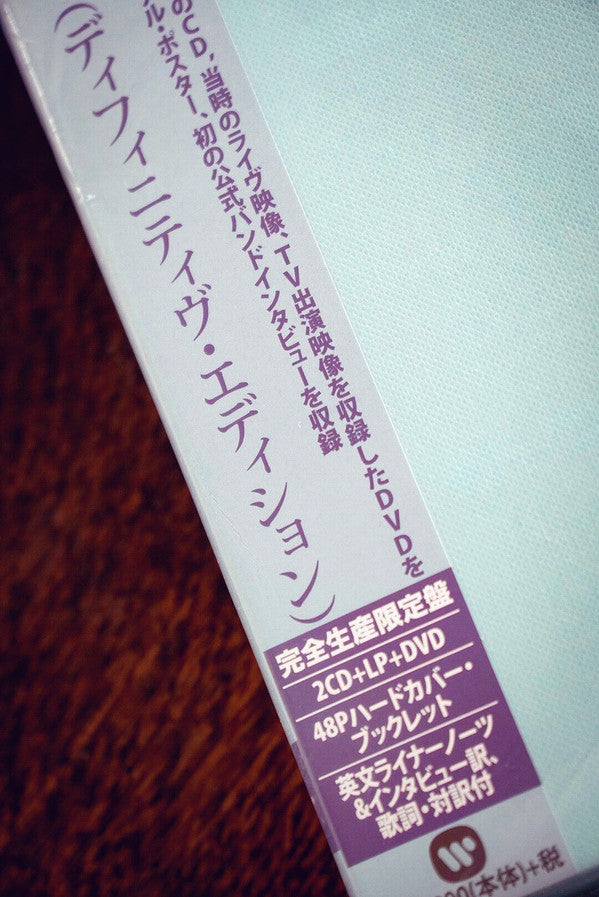 のCD，当時のライヴ映像、TV出演映像を収録したDVDを
ル・ポスター、初の公式バンドインタビューを収録
(ディフィニティヴ・エディション)
完全生産限定盤
2CD+LP+DVD
48Pハードカバー・
ブックレット
英文ライナーノーツ
&インタビュー訳、
歌詞・対訳付
(本体)+税